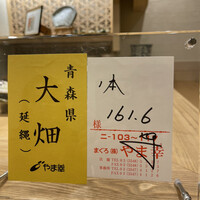 青森県
大畑
（延縄）
やま幸
1本
161.6
様
ニ-103~
まぐろ(株)やま幸